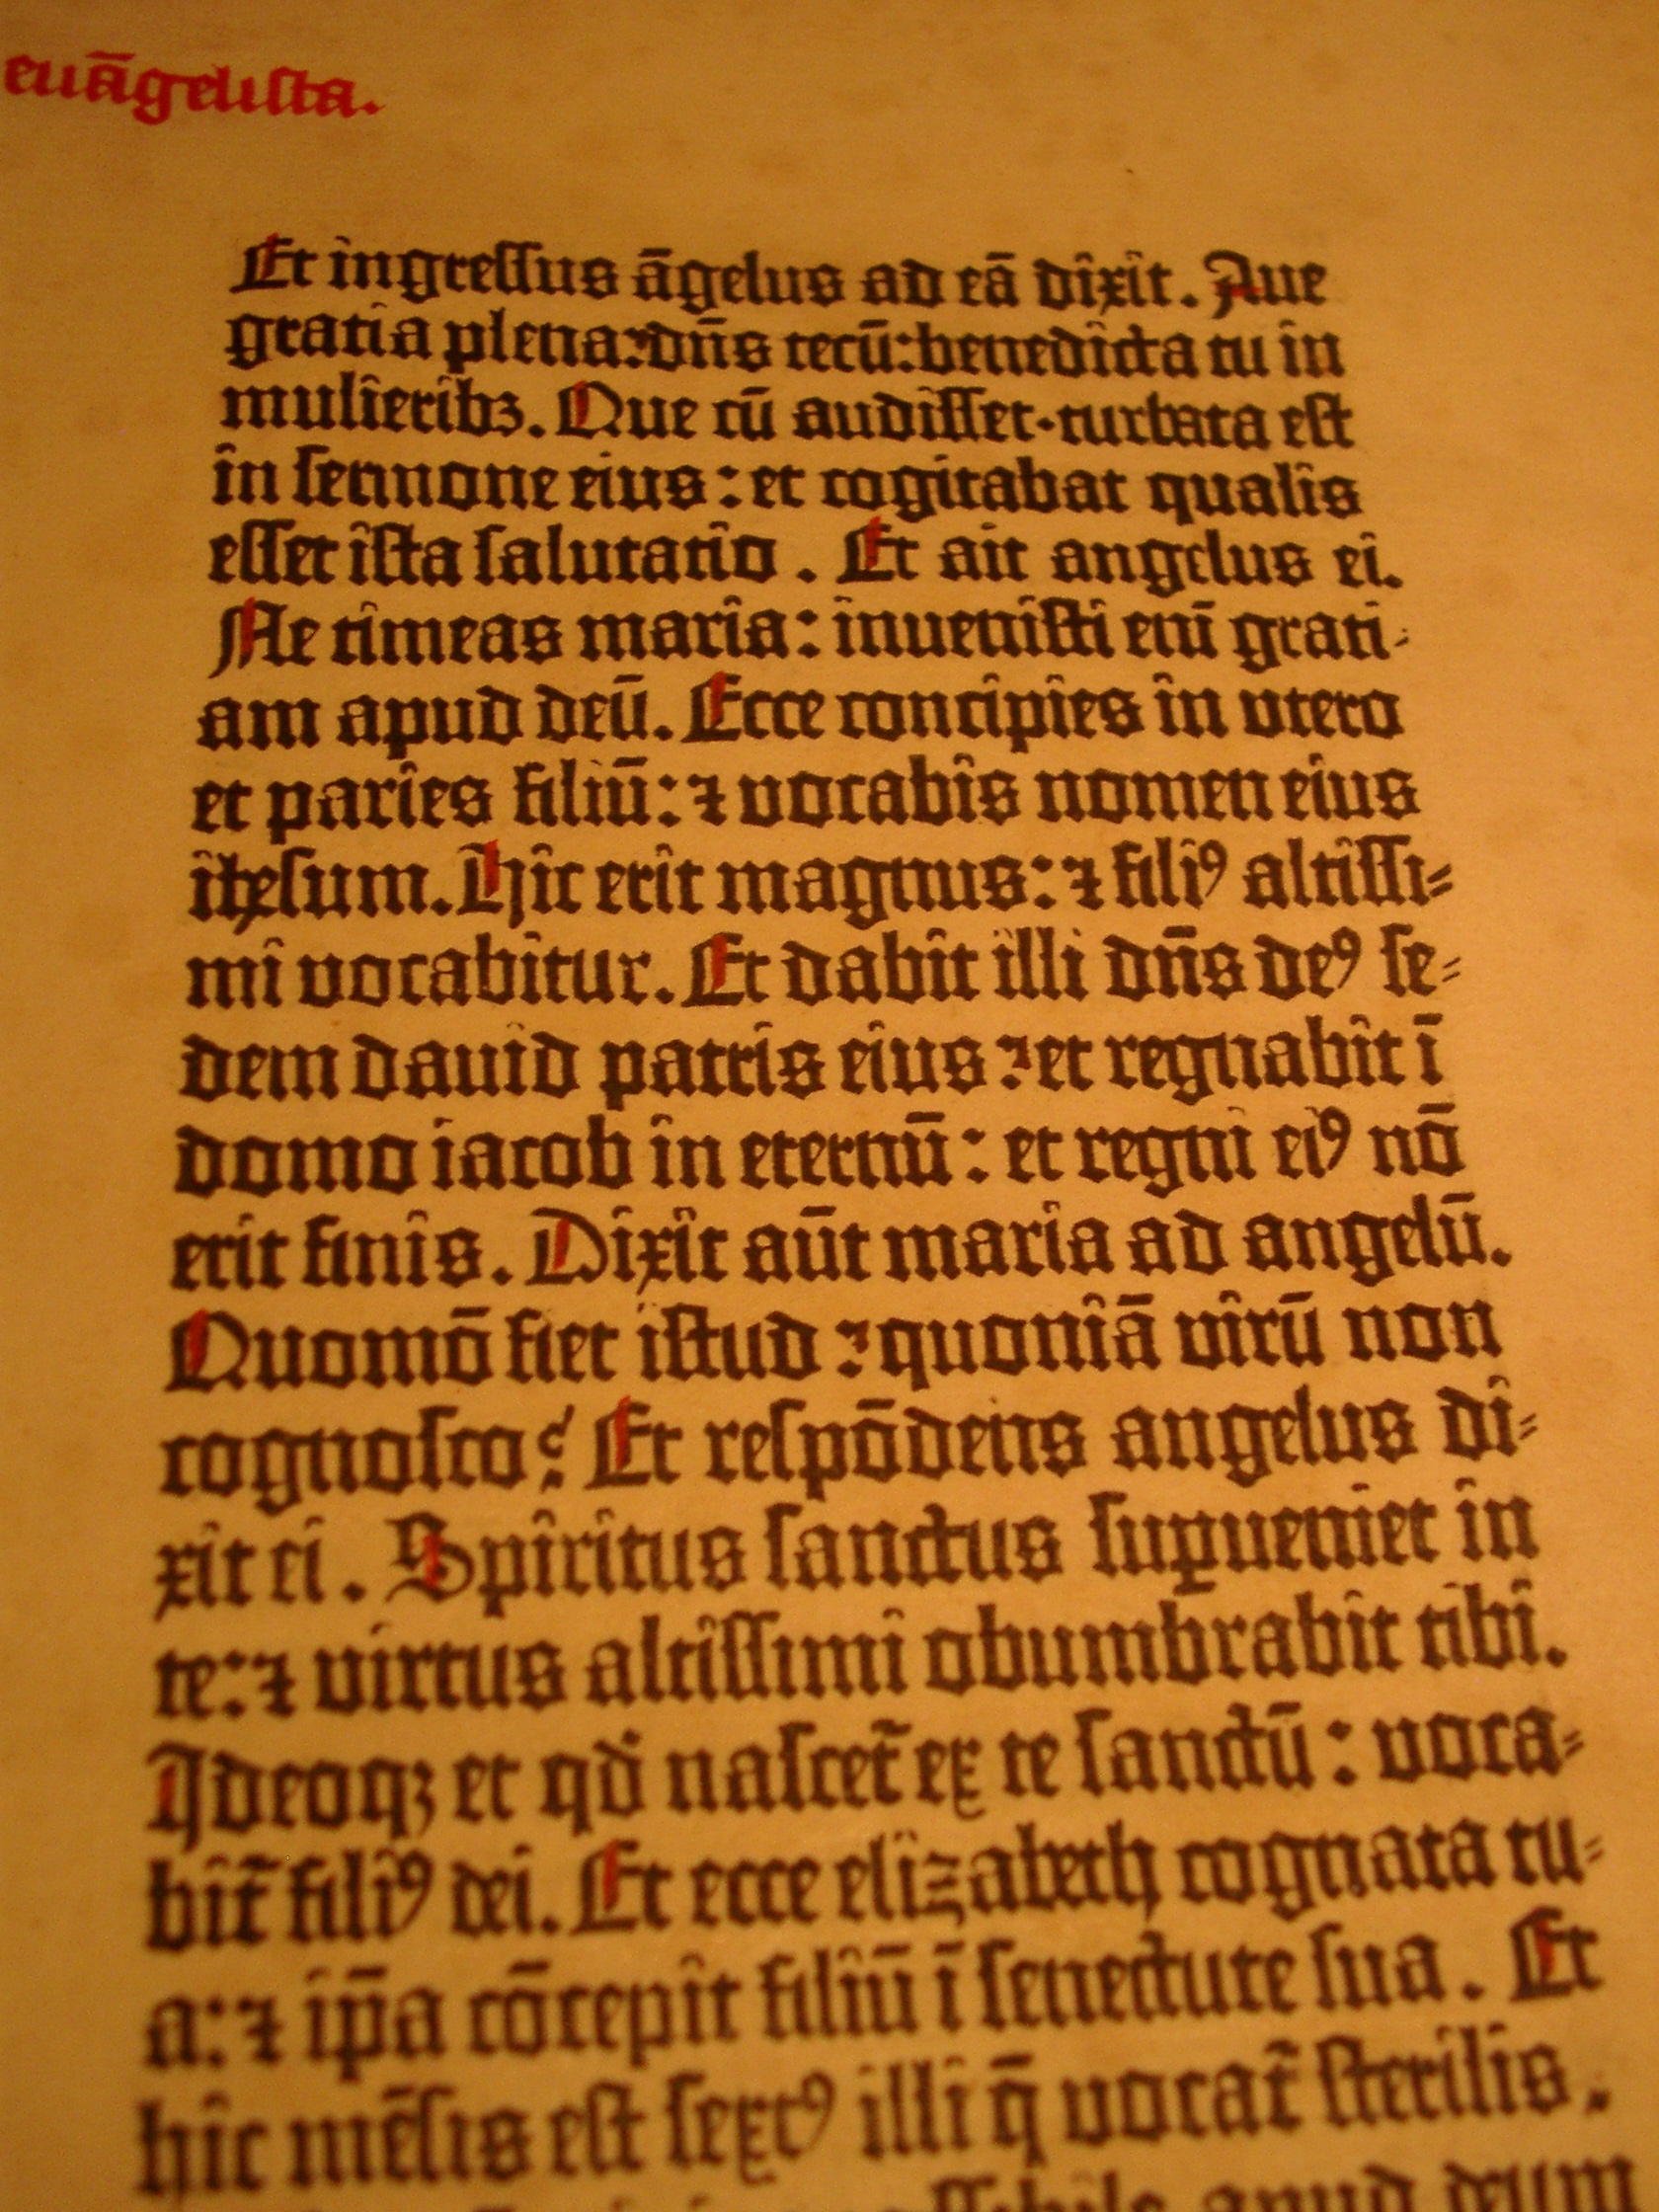 euāgelista.
Et ingressus āgelus ad eā dixit. Aue
gratia plena: dn̄s tecū: benedicta tu in
mulieribꝫ. Que cū audisset· turbata est
in sermone eius: et cogitabat qualis
esset ista salutatio. Et ait angelus ei.
Ne timeas maria: inuenisti eni̅ grati⸗
am apud deū. Ecce concipies in utero
et paries filiū: ⁊ vocabis nomen eius
ihesum. Hic erit magnus: ⁊ filiꝰ altissi⸗
mi vocabitur. Et dabit illi dn̄s deꝰ se⸗
dem dauid patris eius: et regnabit ī
domo iacob in eternū: et regni eiꝰ nō
erit finis. Dixit aūt maria ad angelū.
Quomō fiet istud: quoniā virū non
cognosco? Et respōdens angelus di⸗
xit ei. Spiritus sanctus suꝑueniet in
te: ⁊ virtus altissimi obumbrabit tibi.
Ideoqꝫ et qd̛ nascet̄ ex te sanctū: voca⸗
bit̄ filiꝰ dei. Et ecce elizabeth cognata tu⸗
a: ⁊ ip̄a cōcepit filiū ī senectute sua. Et
hic mēsis est sextꝰ illi q̄ vocat̄ sterilis.
apud deum